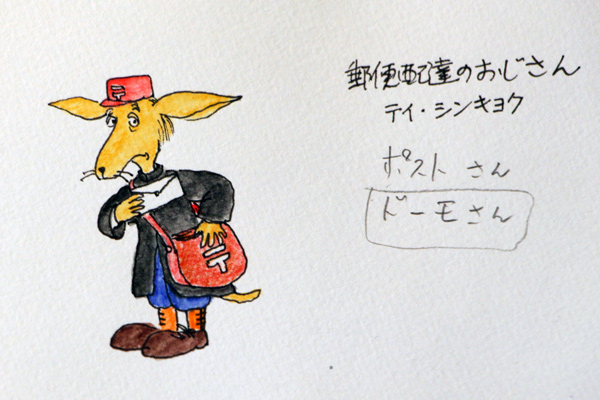 郵便配達のおじさん
テイ・シンキョク
ポスト さん
ドーモ さん
〒
〒